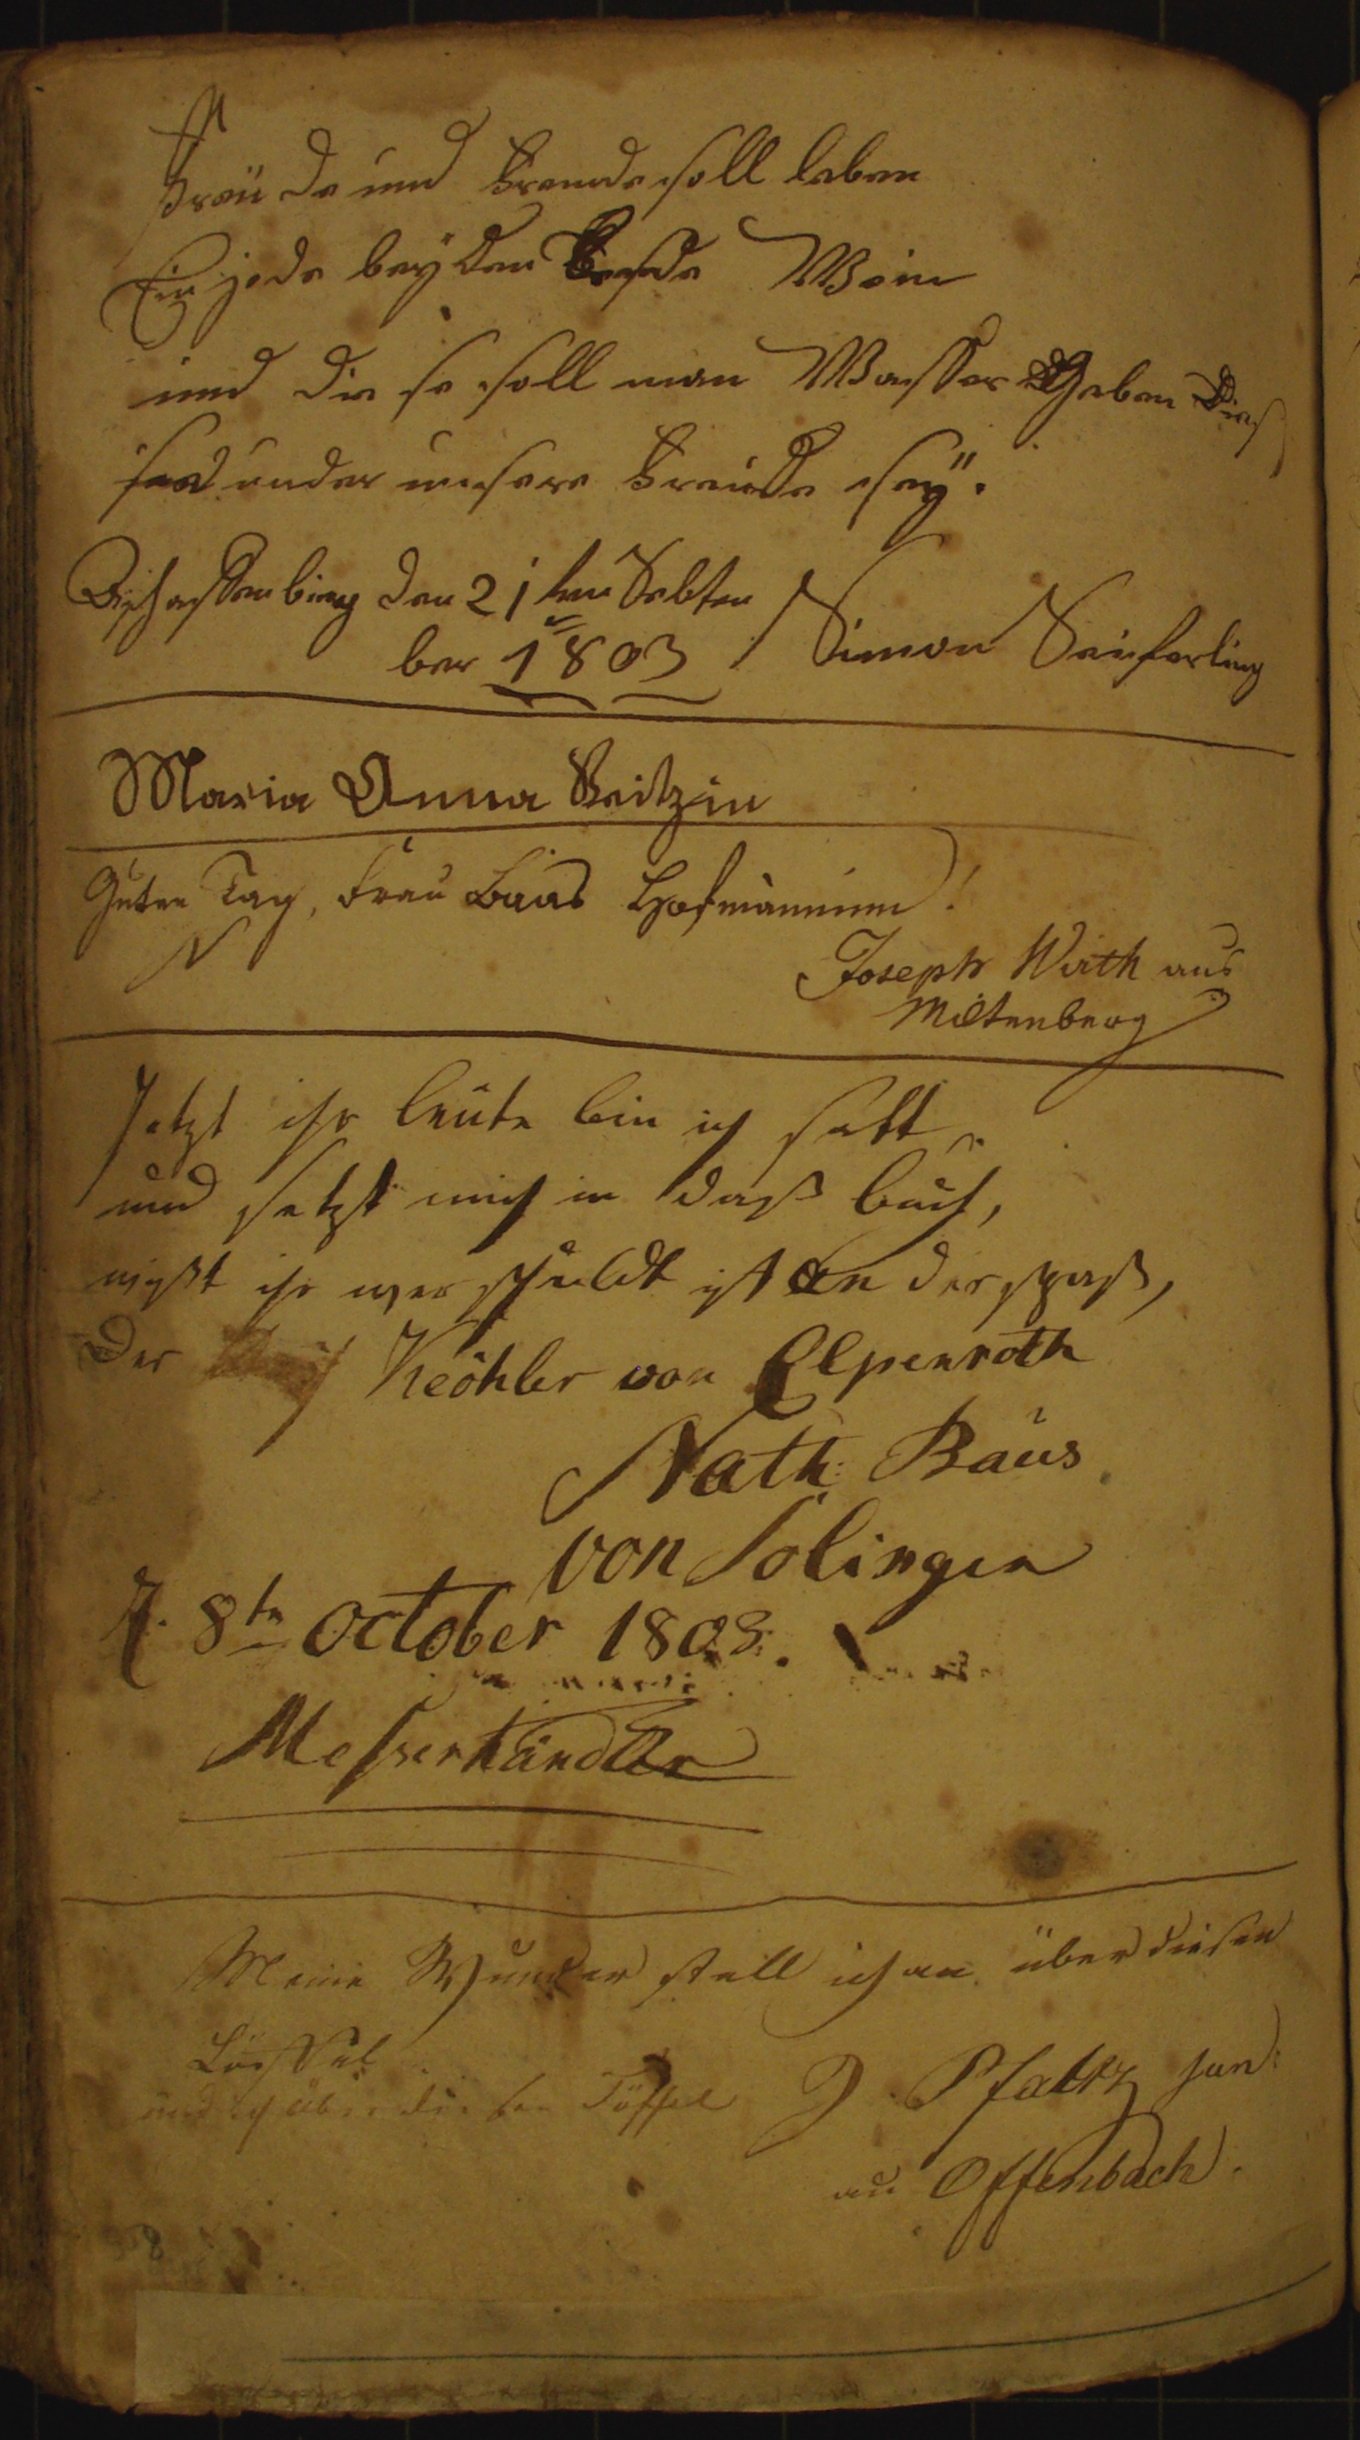 Freü de und Fremde soll leben
Ein jede bey den Beste Wein
und die se soll man Wasser Geben Dies
under unsere Freude sey.
Aschaffenburg den 21ten Sebtem
ber 1803 Simon Seuferling
Maria Anna Beitzin
Guten Tag, Frau Baas Hofmännin!
Joseph Wirth aus
Miltenberg
Jetzt ihr leute bin ich satt
und setzt mich in daß buch,
wißt ihr wer schuldt ist an der spaß,
Der Keöhler von Elpenroth
Nath: Baus
von Solingen
8tn October 1803.
Messerhändler
Meine Wunder stell ich an über diesen
Löffel
und ich über die sen Töffel J. Pfaltz jun:
aus Offenbach.